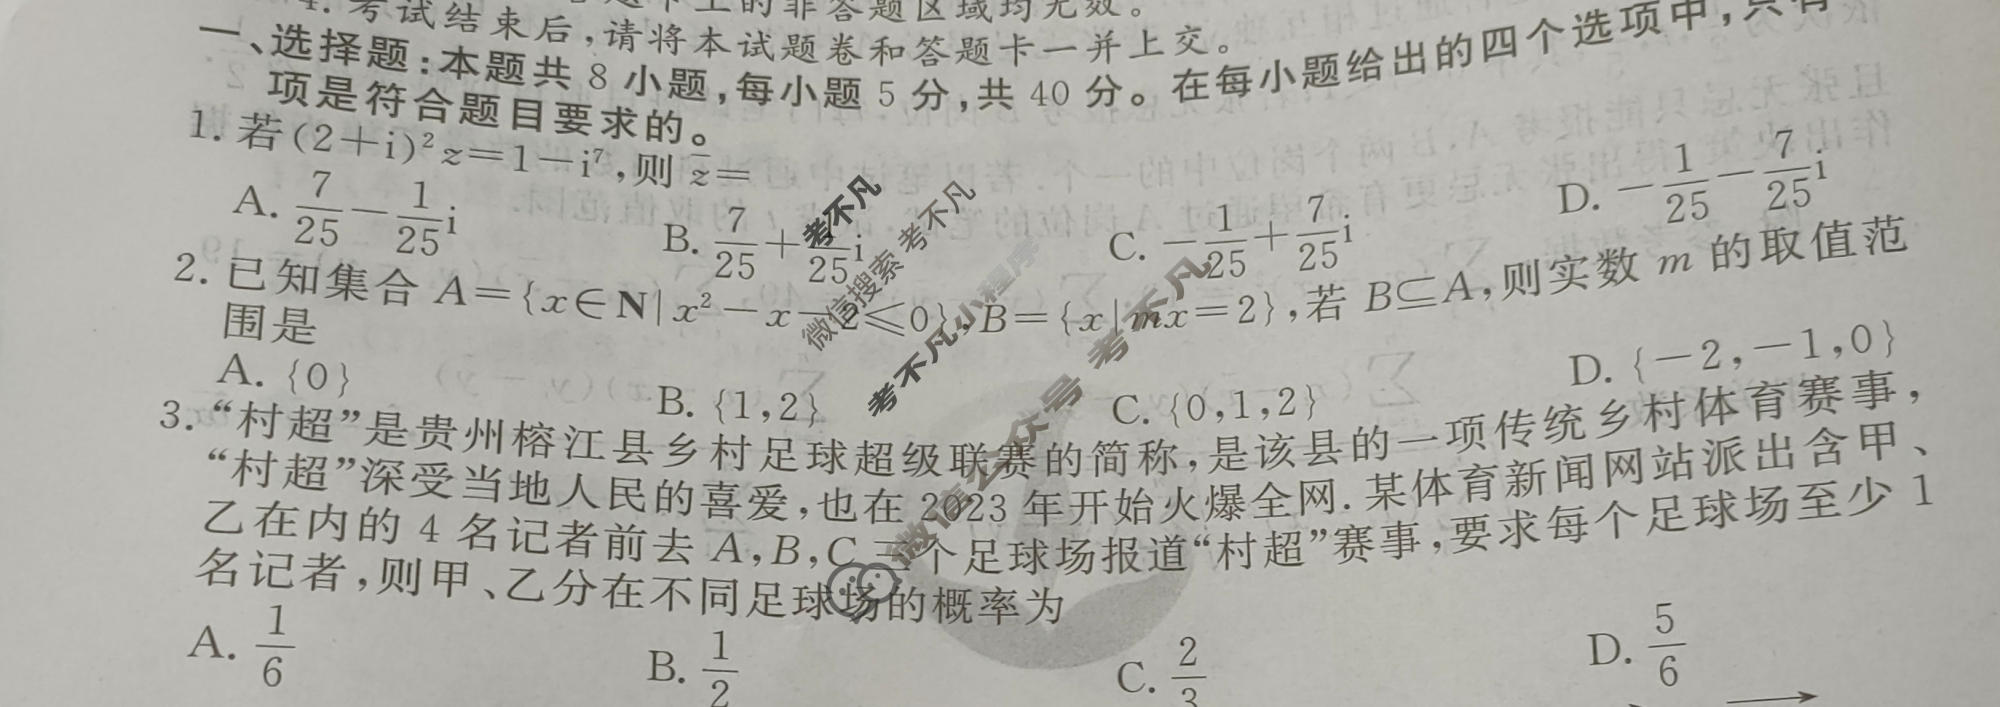 4. 考试结束后,请将本试题卷和答题卡一并上交。
一、选择题:本题共 8 小题,每小题 5 分,共 40 分。在每小题给出的四个选项中,只有
项是符合题目要求的。
1. 若(2+i)²z=1-i⁷,则 z̅=
A. 7/25-1/25i B. 7/25+1/25i C. -1/25+7/25i D. -1/25-7/25i
2. 已知集合 A={x∈N|x²-x-2≤0},B={x|mx=2},若 B⊆A,则实数 m 的取值范
围是
A. {0} B. {1,2} C. {0,1,2} D. {-2,-1,0}
3. “村超”是贵州榕江县乡村足球超级联赛的简称,是该县的一项传统乡村体育赛事,
“村超”深受当地人民的喜爱,也在 2023 年开始火爆全网. 某体育新闻网站派出含甲、
乙在内的 4 名记者前去 A,B,C 三个足球场报道“村超”赛事,要求每个足球场至少 1
名记者,则甲、乙分在不同足球场的概率为
A. 1/6 B. 1/2 C. 2/3 D. 5/6
考不凡
微信搜索 考不凡
考不凡小程序
微信公众号 考不凡